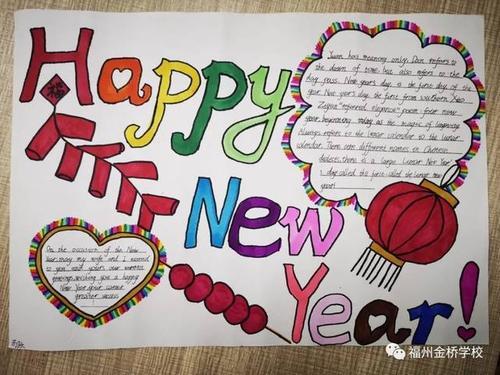 Happy
福
Yuan has meaning only, Dan refers to
the dawn of time but also refers to the
day pass. New years day is the first day of the
year New year's day the first from southern Xiao
Ziyun "referred elegance" poem four many
year beginning today as the number of language
Always refers to the lunar calendar to the lunar
calendar. There are different names in Chinese
dialects. there is a large Lunar New Year
day called the first called the lunar new
year!
New
On the occasion of the New
Year, may my wife and I extend
to you and yours our warmest
greetings, wishing you a happy
New Year, your career
greater success
Year!
福州金桥学校